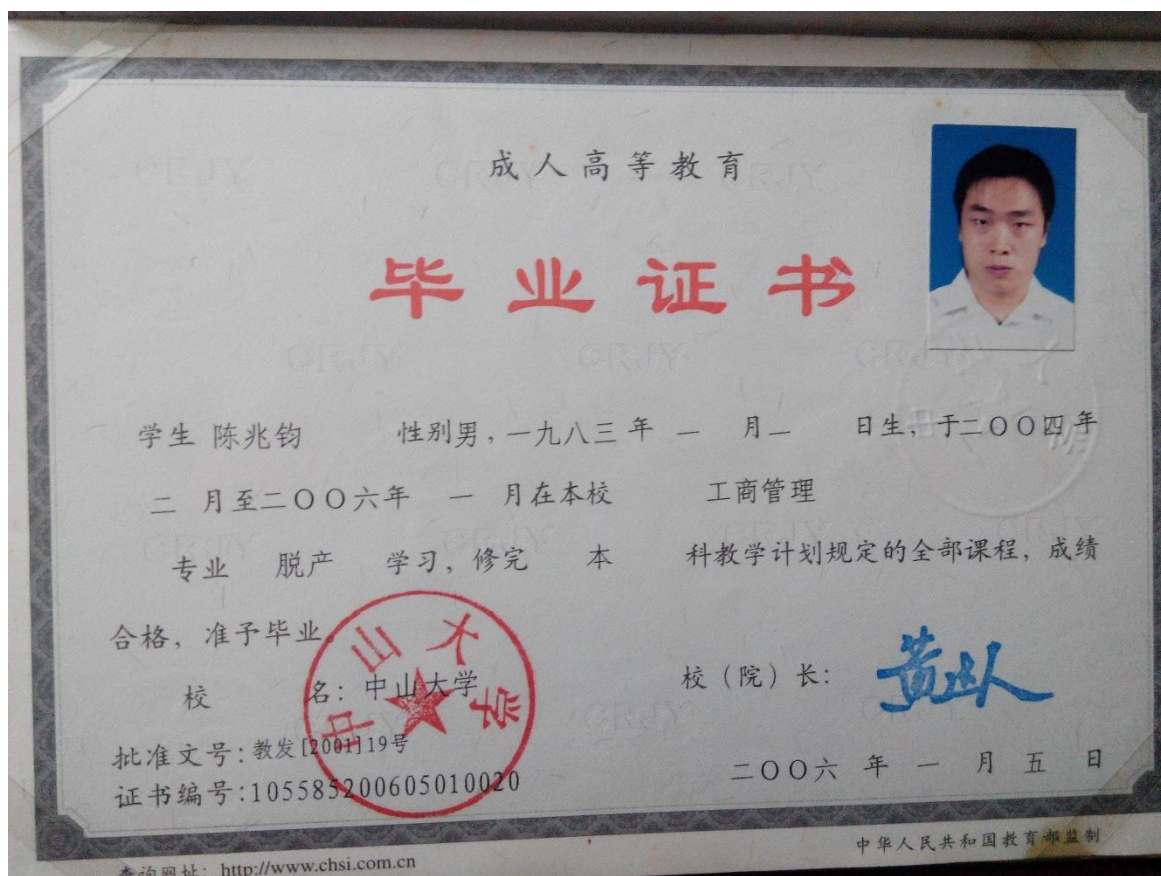 成人高等教育
毕业证书
学生 陈兆钧 性别男，一九八三年 一 月一 日生，于二〇〇四年
二 月至二〇〇六年 一 月在本校 工商管理
专业 脱产 学习，修完 本 科教学计划规定的全部课程，成绩
合格，准予毕业。
校 名：中山大学
校（院）长：
中山大学
批准文号：教发[2001]19号
证书编号：105585200605010020
二〇〇六 年 一 月 五 日
中华人民共和国教育部监制
查询网址：http://www.chsi.com.cn